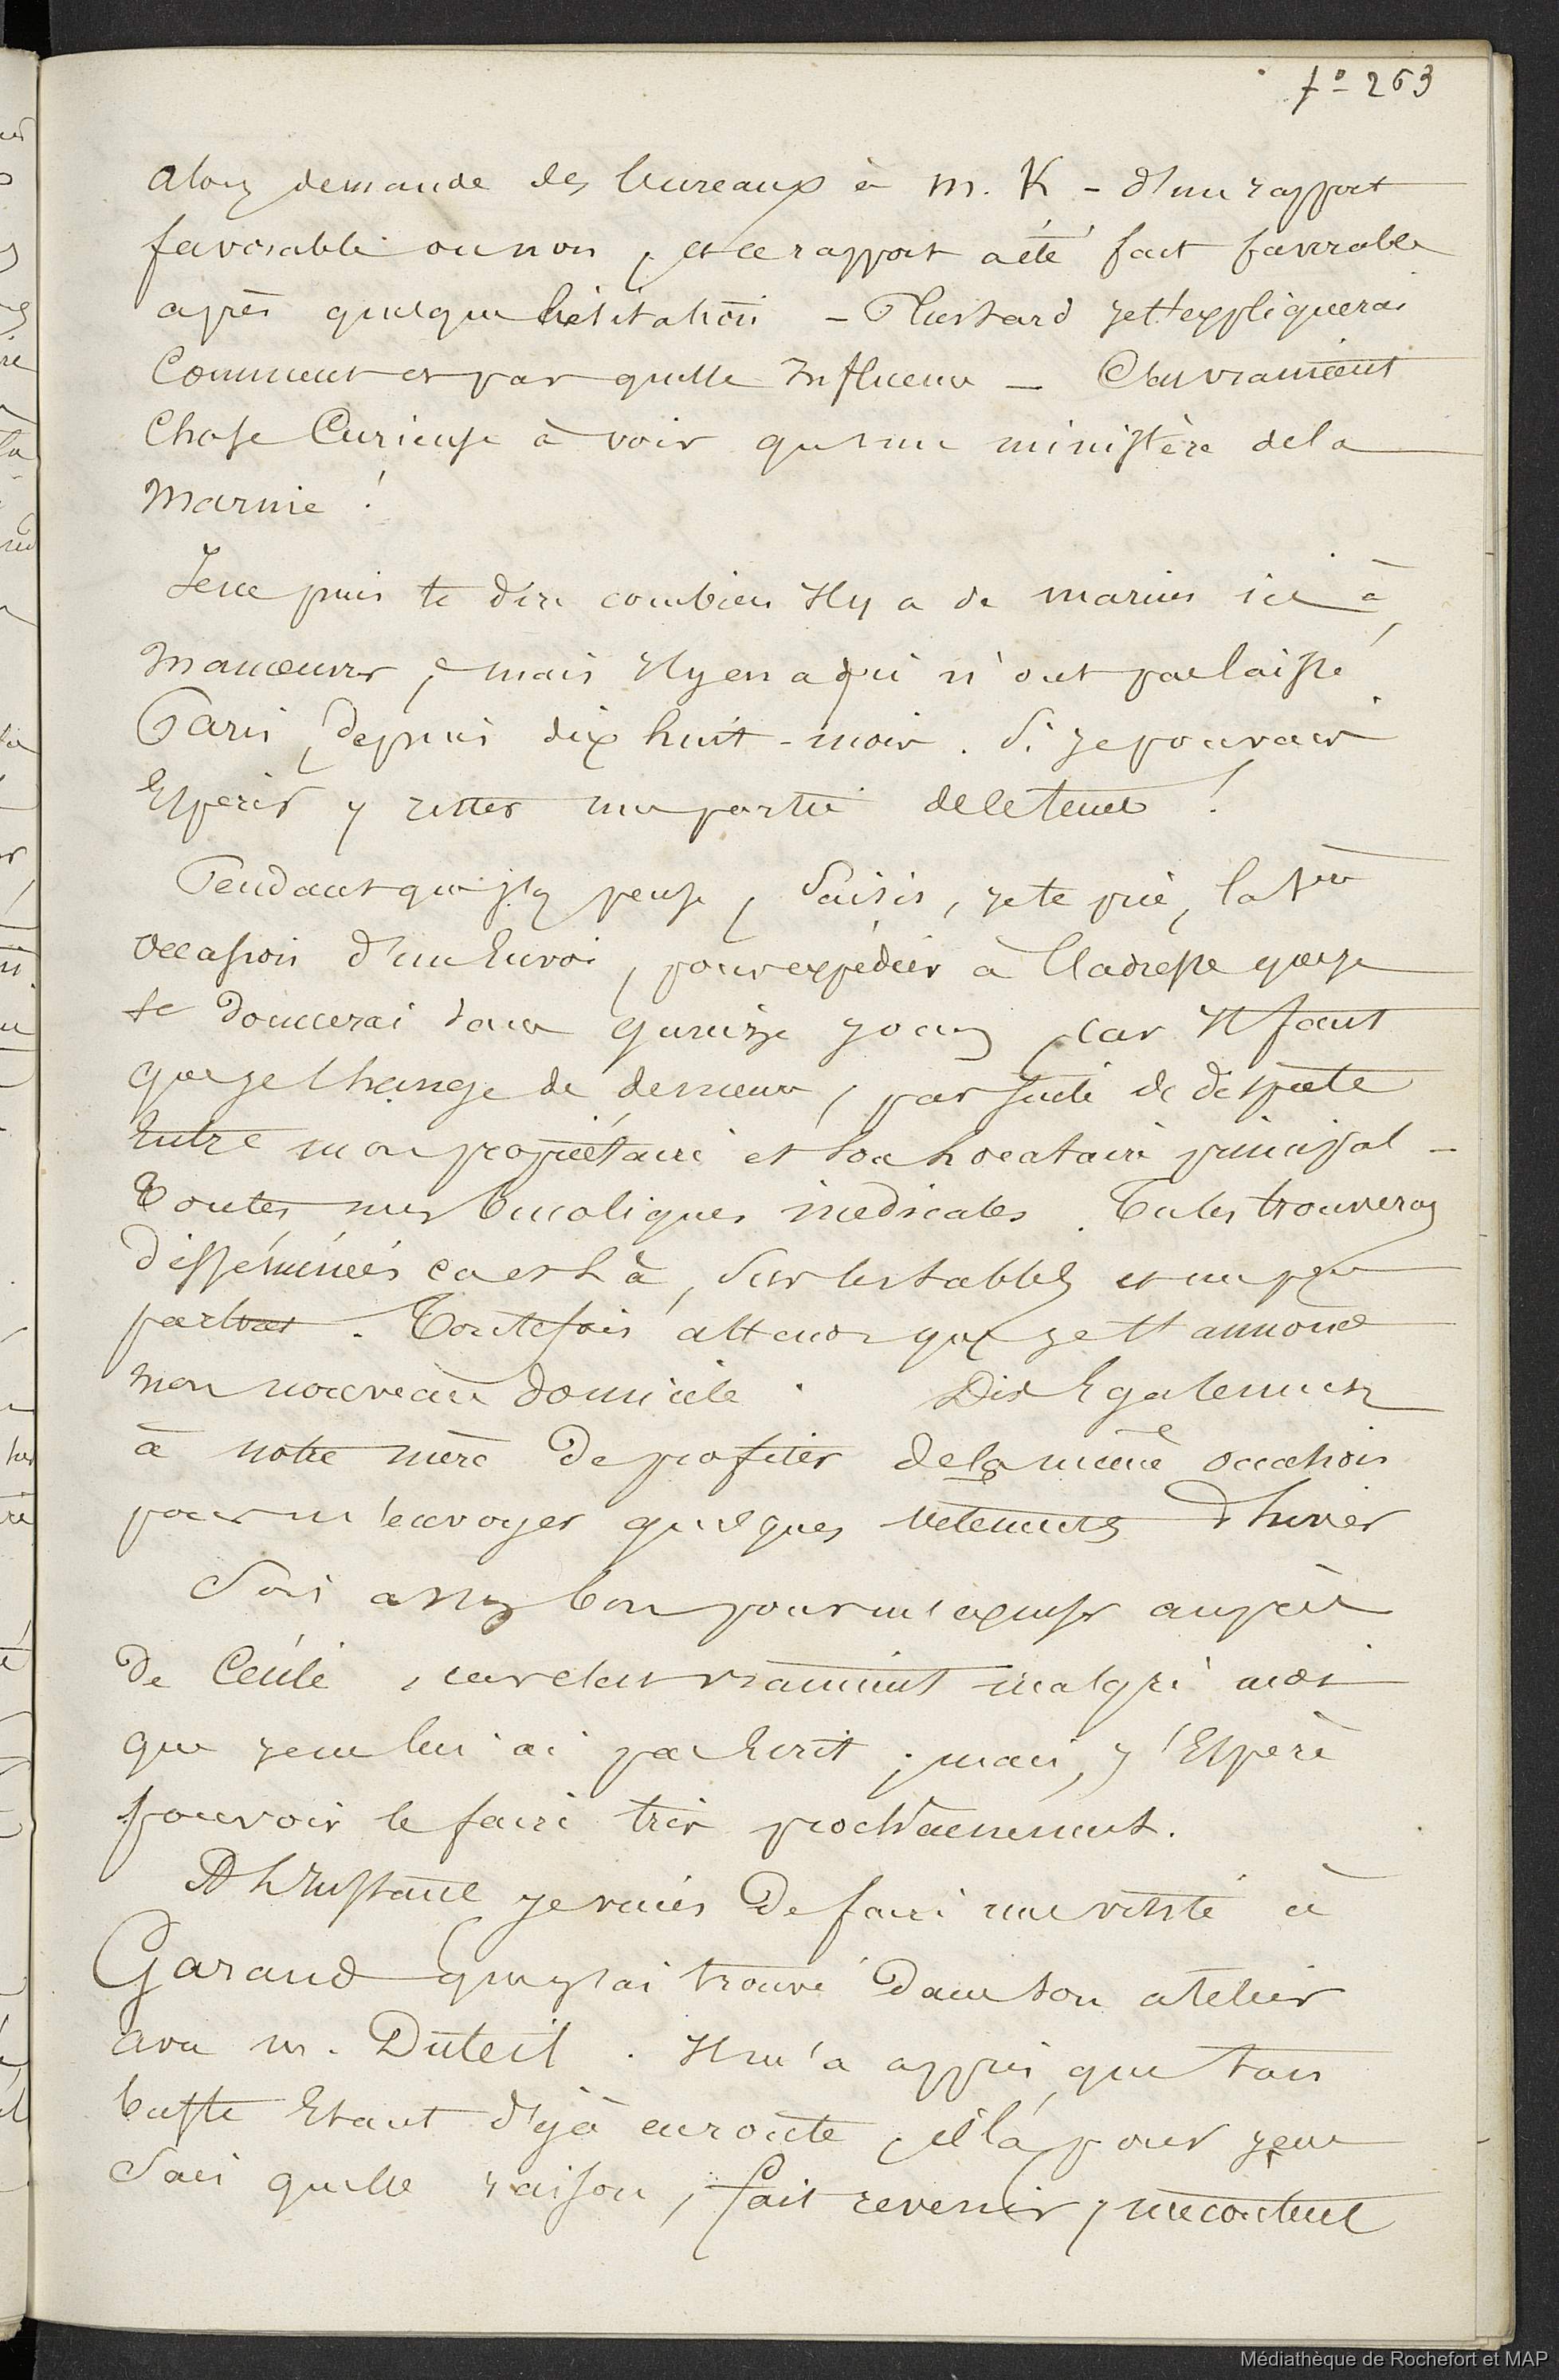 fo 263
alors demande des bureaux à M. K - d'un rapport
favorable ou non, et ce rapport a été fait favorable
après quelque hésitation - Plus tard je t'expliquerai
Comment et par quelle Influence - C'est vraiment
Chose Curieuse à voir qu'un ministère de la
Marine !
Je ne puis te dire combien Il y a de marins ici à
Manoeuvrer, mais Il y en a qui n'ont pas laissé
Paris, depuis dix huit-mois. Si je pouvais
Espérer y rester une partie de le temps !
Pendant que j'y pense, Saisis, je te prie, la 1ère
occasion d'un Envoi, pour expédier à l'adresse que je
te donnerai dans quinze jours, car Il faut
que je Change de demeure, par suite de dispute
Entre mon propriétaire et son Locataire principal -
Toutes mes bucoliques médicales. Tu les trouveras
disséminées ça et Là, Sur les tables et un peu
partout. Toutefois attends que je t'annonce
mon nouveau domicile. Dis Egalement
à notre mère De profiter de la même occasion
pour m'envoyer quelques vêtements d'hiver
Sois assez bon pour m'excuser auprès
de , car c'est vraiment malgré moi
que je ne lui ai pas Ecrit ; mais, j'Espère
pouvoir le faire très prochainement.
A L'Instant je viens De faire une visite à
Garaud que j'ai trouvé Dans son atelier
avec M. Duteil. Il m'a appris que ton
buste Etant déjà en route, il l'a, pour je ne
Sais quelle raison, fait revenir, mécontent
Médiathèque de Rochefort et MAP